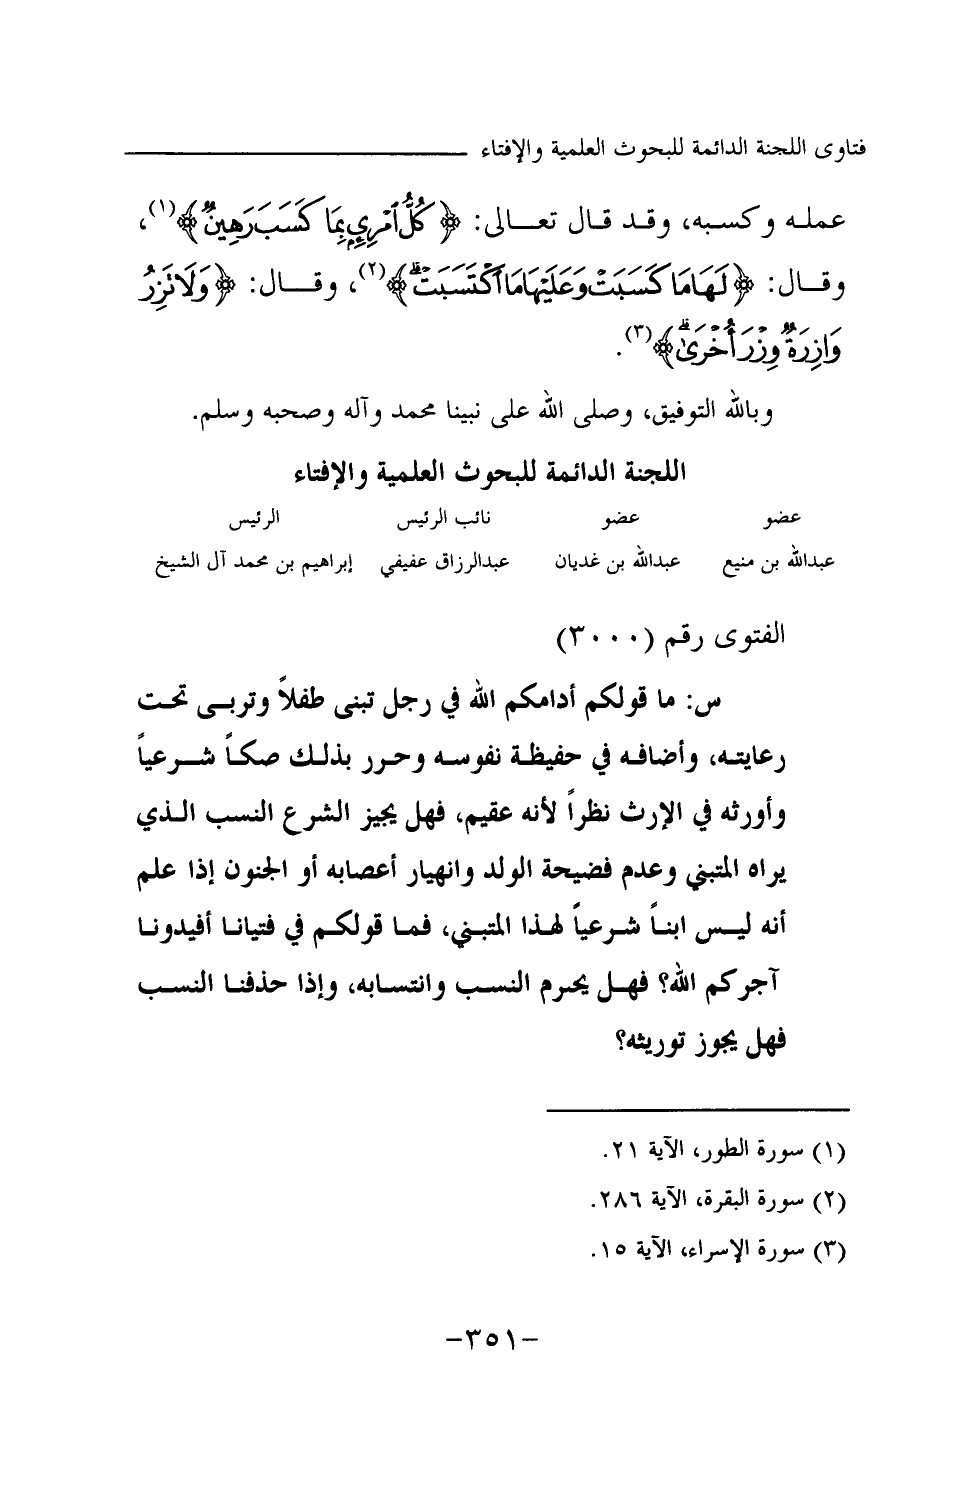 فتاوى اللجنة الدائمة للبحوث العلمية والإفتاء
عمله وكسبه، وقد قال تعـالى: ﴿كُلُّ ٱمْرِيٍٕ بِمَا كَسَبَ رَهِينٌ﴾(١)،
وقـال: ﴿لَهَا مَا كَسَبَتْ وَعَلَيْهَا مَا ٱكْتَسَبَتْ﴾(٢)، وقـال: ﴿وَلَا تَزِرُ
وَازِرَةٌ وِزْرَ أُخْرَىٰ﴾(٣).
وبالله التوفيق، وصلى الله على نبينا محمد وآله وصحبه وسلم.
اللجنة الدائمة للبحوث العلمية والإفتاء
عضو عضو نائب الرئيس الرئيس
عبدالله بن منيع عبدالله بن غديان عبدالرزاق عفيفي إبراهيم بن محمد آل الشيخ
الفتوى رقم (٣٠٠٠)
س: ما قولكم أدامكم الله في رجل تبنى طفلاً وتربى تحت
رعايته، وأضافه في حفيظة نفوسه وحرر بذلك صكاً شرعياً
وأورثه في الإرث نظراً لأنه عقيم، فهل يجيز الشرع النسب الذي
يراه المتبني وعدم فضيحة الولد وانهيار أعصابه أو الجنون إذا علم
أنه ليس ابناً شرعياً لهذا المتبني، فما قولكم في فتيانا أفيدونا
آجركم الله؟ فهل يحرم النسب وانتسابه، وإذا حذفنا النسب
فهل يجوز توريثه؟
(١) سورة الطور، الآية ٢١.
(٢) سورة البقرة، الآية ٢٨٦.
(٣) سورة الإسراء، الآية ١٥.
-٣٥١-